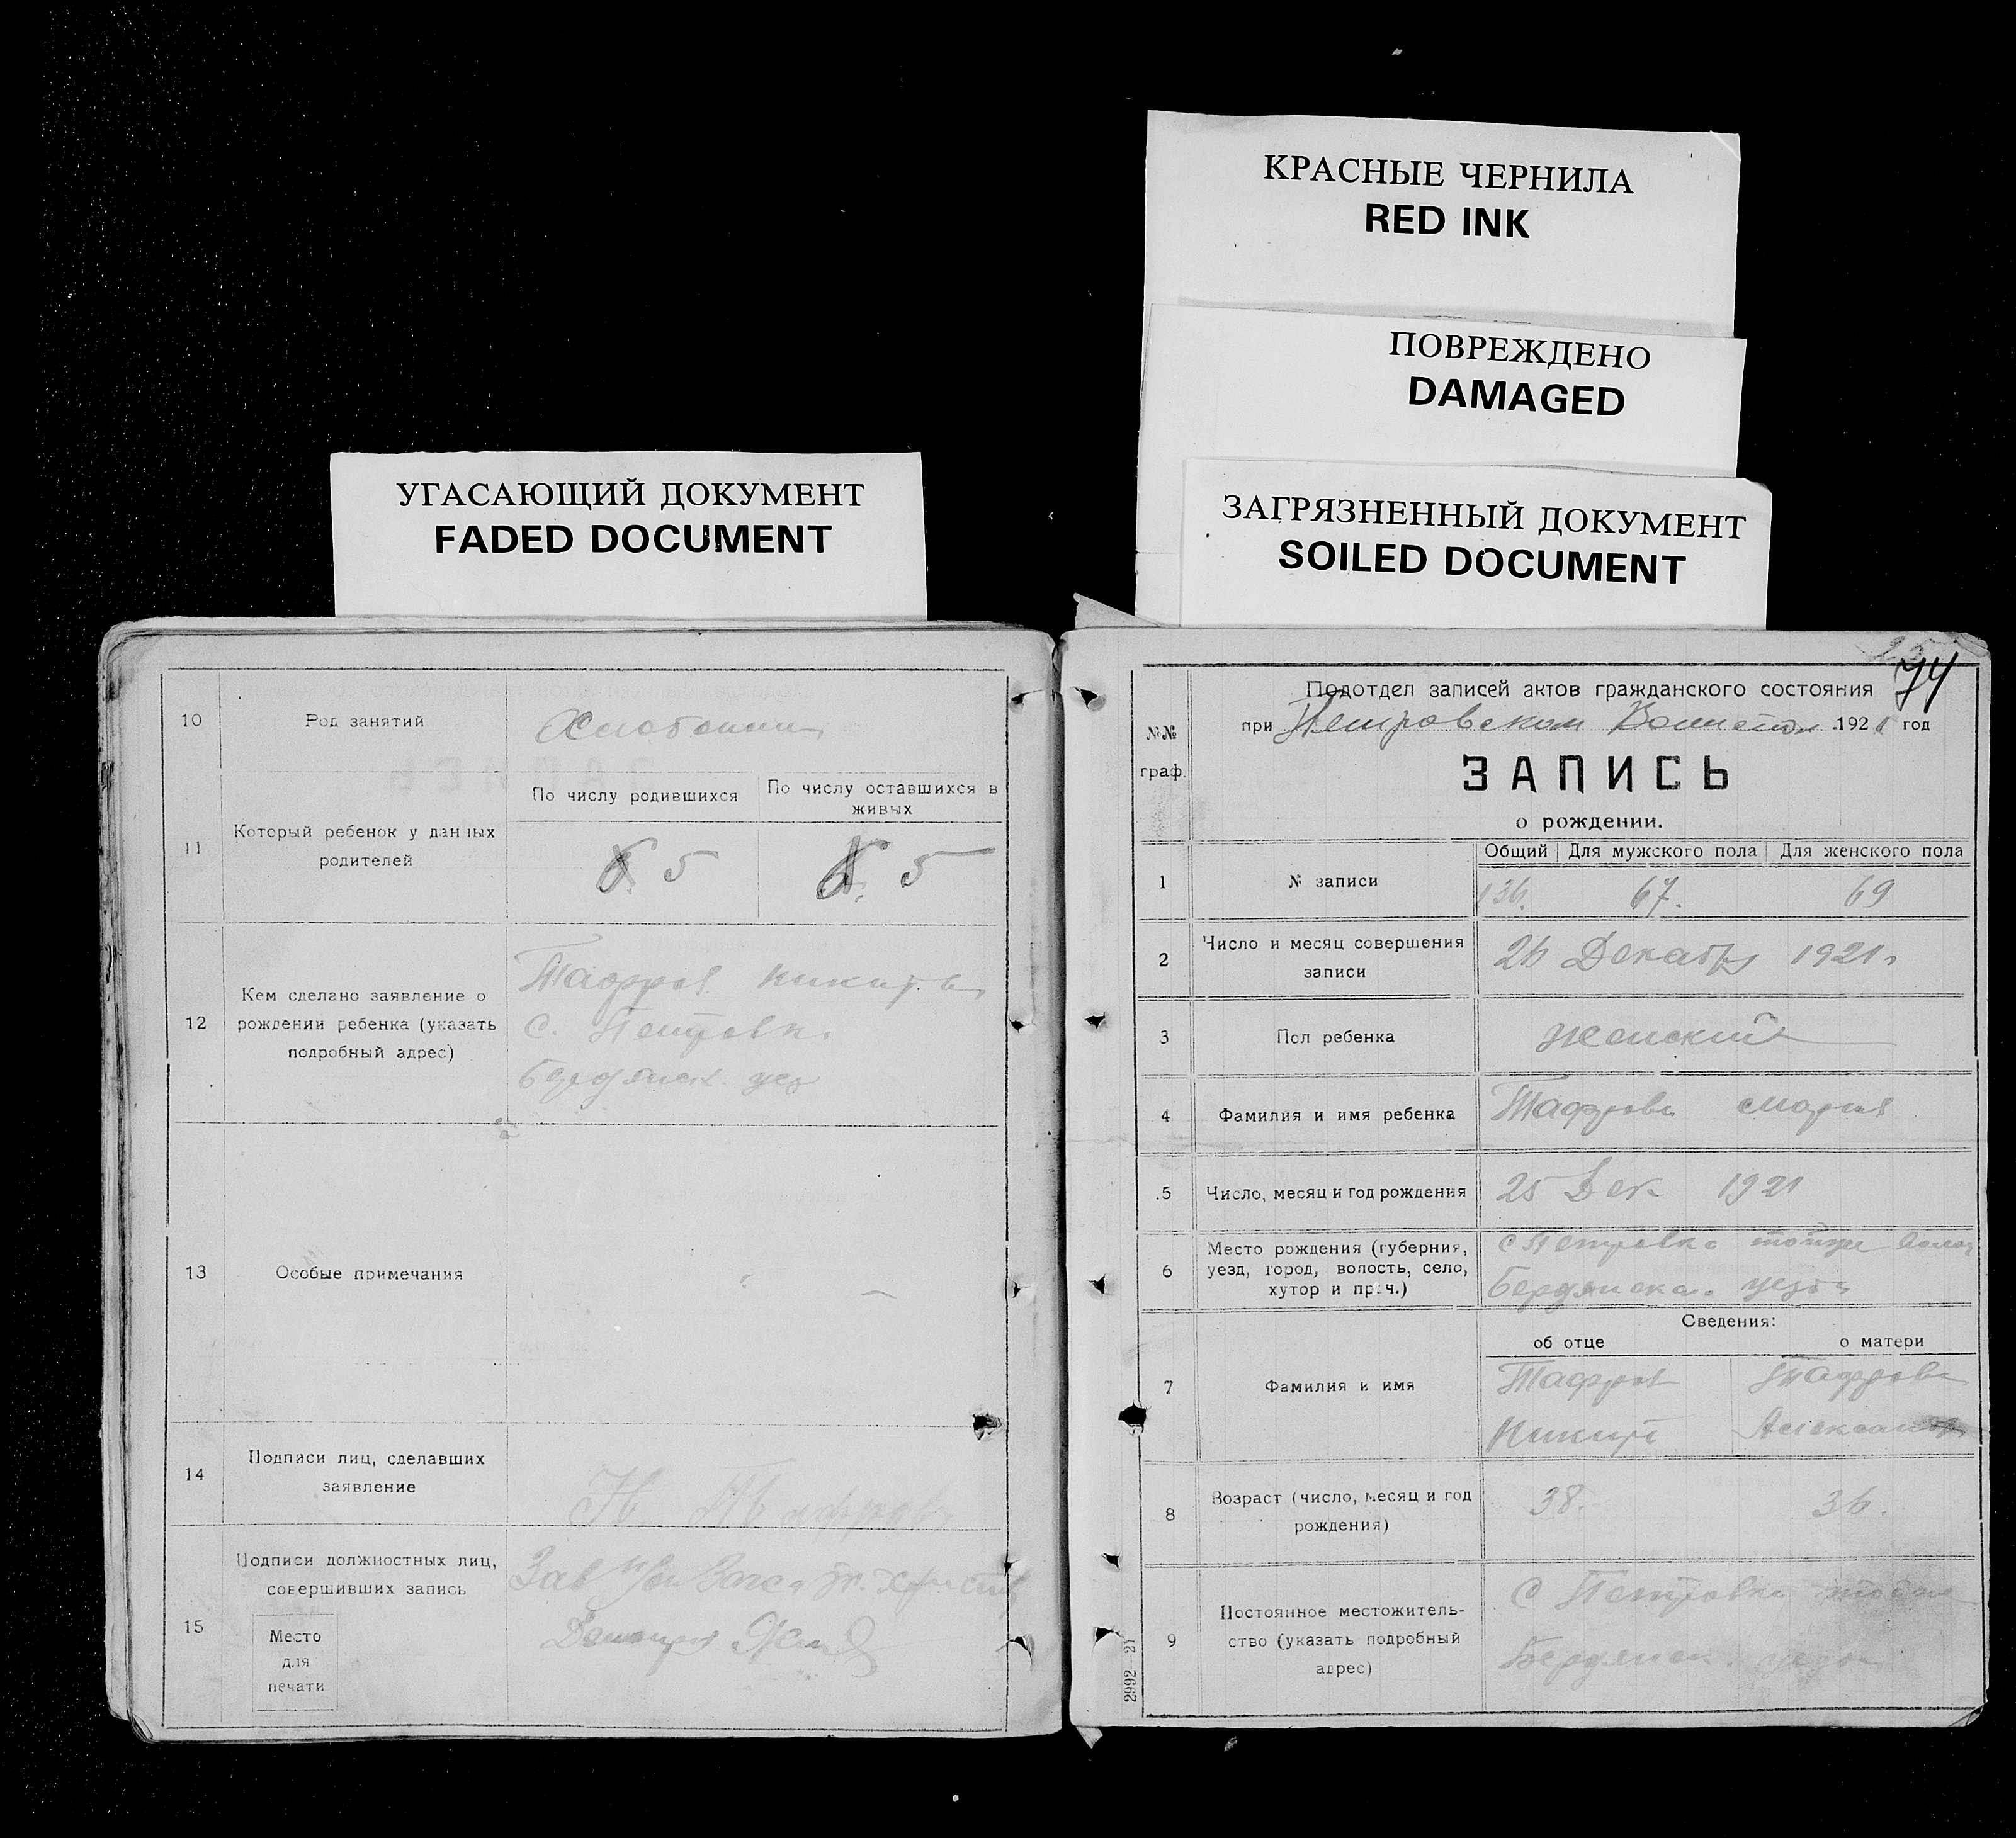 КРАСНЫЕ ЧЕРНИЛА
RED INK
ПОВРЕЖДЕНО
DAMAGED
ЗАГРЯЗНЕННЫЙ ДОКУМЕНТ
SOILED DOCUMENT
УГАСАЮЩИЙ ДОКУМЕНТ
FADED DOCUMENT
10
Род занятий
11
Который ребенок у данных
родителей
По числу родившихся
По числу оставшихся в
живых
5
5
12
Кем сделано заявление о
рождении ребенка (указать
подробный адрес)
с. Петровк.
Бердянск. уез
13
Особые примечания
14
Подписи лиц, сделавших
заявление
15
Подписи должностных лиц,
совершивших запись
Место
для
печати
74
Подотдел записей актов гражданского состояния
при Петровском 1921 год
№№
граф.
ЗАПИСЬ
о рождении.
1
№ записи
Общий
Для мужского пола
Для женского пола
136.
67.
69
2
Число и месяц совершения
записи
26 Декабр 1921г
3
Пол ребенка
женский
4
Фамилия и имя ребенка
Мария
5
Число, месяц и год рождения
25 Дек 1921
6
Место рождения (губерния,
уезд, город, волость, село,
хутор и проч.)
с Петровка
Бердянска. уезда
Сведения:
об отце
о матери
7
Фамилия и имя
Никита
Александра
8
Возраст (число, месяц и год
рождения)
38.
36.
9
Постоянное местожитель-
ство (указать подробный
адрес)
С Петровка
Бердянск. уезда
2992—21